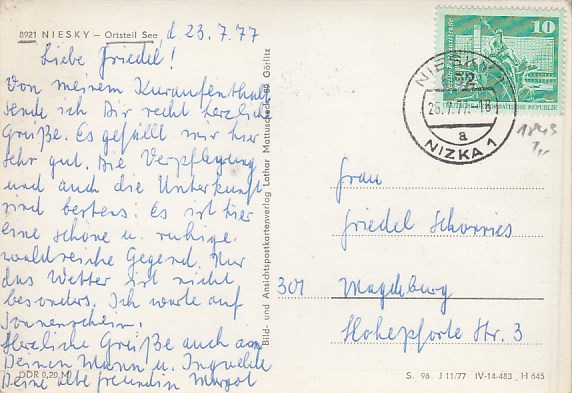 8921 NIESKY – Ortsteil See, d. 23.7.77
Liebe Friedel!
Von meinem Kuraufenthalt
sende ich Dir recht herzliche
Grüße. Es gefällt mir hier
sehr gut. Die Verpflegung
und auch die Unterkunft
sind bestens. Es ist hier
eine schöne u. ruhige
waldreiche Gegend. Nur
das Wetter ist nicht
besonders. Ich warte auf
Sonnenschein.
Herzliche Grüße auch an
Deinen Mann u.
Deine alte Freundin Margot
DDR 0,20 M
Bild- und Ansichtspostkartenverlag Lothar Mattuscheck 89 Görlitz
10
DEUTSCHE DEMOKRATISCHE REPUBLIK
NIESKY 1
25.7.77.-18
a
NIZKA 1
Frau
Friedel
301 Magdeburg
Hohepforte Str. 3
S. 96 J 11/77 IV-14-483 H 645